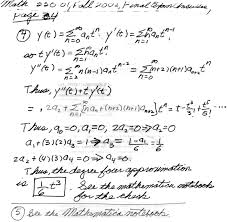 Math 220 01, Fall 2002, Final Exam
page 4
④ y(t) = Σ_{n=0}^{∞} a_n t^n  y'(t) = Σ_{n=1}^{∞} n a_n t^{n-1}
so t y'(t) = Σ_{n=1}^{∞} n a_n t^n
y''(t) = Σ_{n=2}^{∞} n(n-1) a_n t^{n-2} = Σ_{n=0}^{∞} (n+2)(n+1) a_{n+2} t^n
Thus, y''(t) + t y'(t)
= 2a_2 + Σ_{n=1}^{∞} [n a_n + (n+2)(n+1) a_{n+2}] t^n = t - t^3/3! + t^5/5! - ...
Thus, a_0 = 0, a_1 = 0, 2a_2 = 0 ⇒ a_2 = 0
a_1 + (3)(2) a_3 = 1 ⇒ a_3 = (1-a_1)/6 = 1/6
2a_2 + (4)(3) a_4 = 0 ⇒ a_4 = 0.
Thus, the degree four approximation
is 1/6 t^3. See the mathematica notebook
for the check
⑤ See the Mathematica notebook